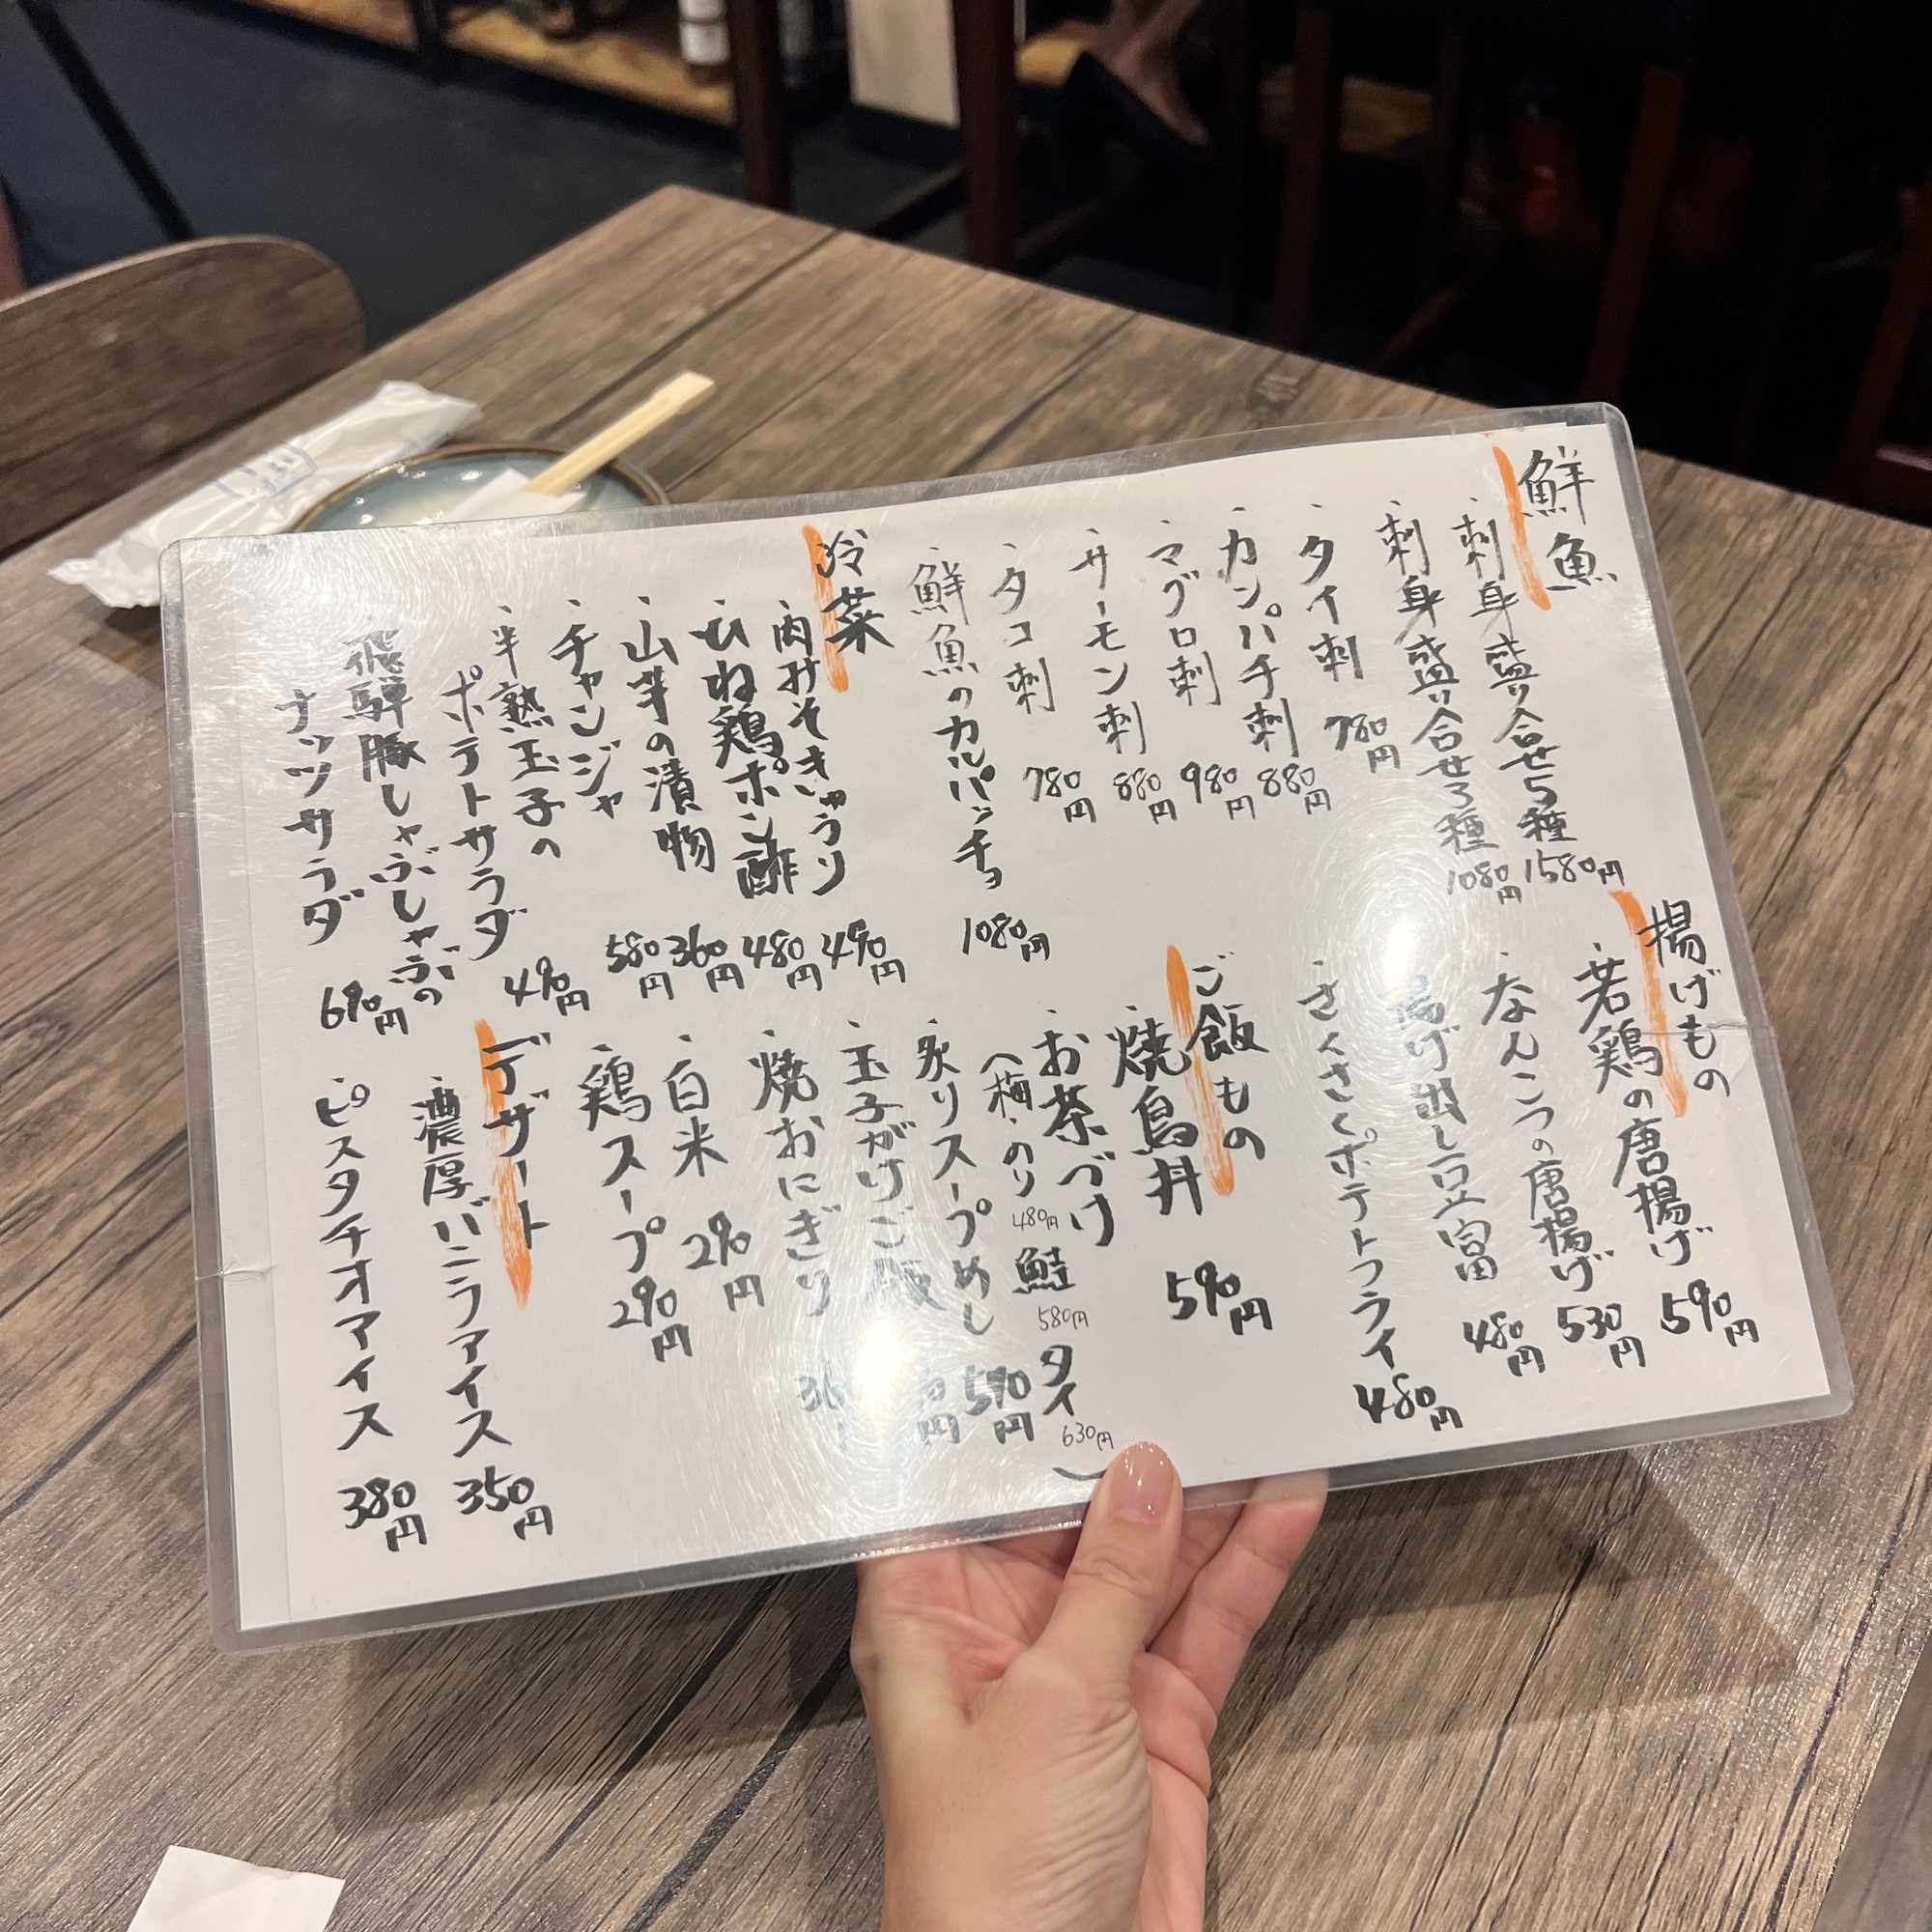 鮮魚
、刺身盛り合せ5種 1580円
、刺身盛り合せ3種 1080円
、タイ刺 780円
、カンパチ刺 880円
、マグロ刺 980円
、サーモン刺 880円
、タコ刺 780円
、鮮魚のカルパッチョ 1080円
冷菜
、肉みそきゅうり 490円
、ひね鶏ポン酢 480円
、山芋の漬物 360円
、チャンジャ 580円
、半熟玉子の
ポテトサラダ 490円
飛騨豚しゃぶしゃぶの
ナッツサラダ 690円
揚げもの
、若鶏の唐揚げ 590円
、なんこつの唐揚げ 530円
揚げ出し豆富 480円
、さくさくポテトフライ 480円
ご飯もの
、焼鳥丼 590円
、お茶づけ
(梅・のり 480円 鮭 580円 タイ 630円)
、炙りスープめし 590円
、玉子がけご飯 円
、焼おにぎり
、白米 290円
、鶏スープ 290円
デザート
、濃厚バニラアイス 350円
、ピスタチオアイス 380円